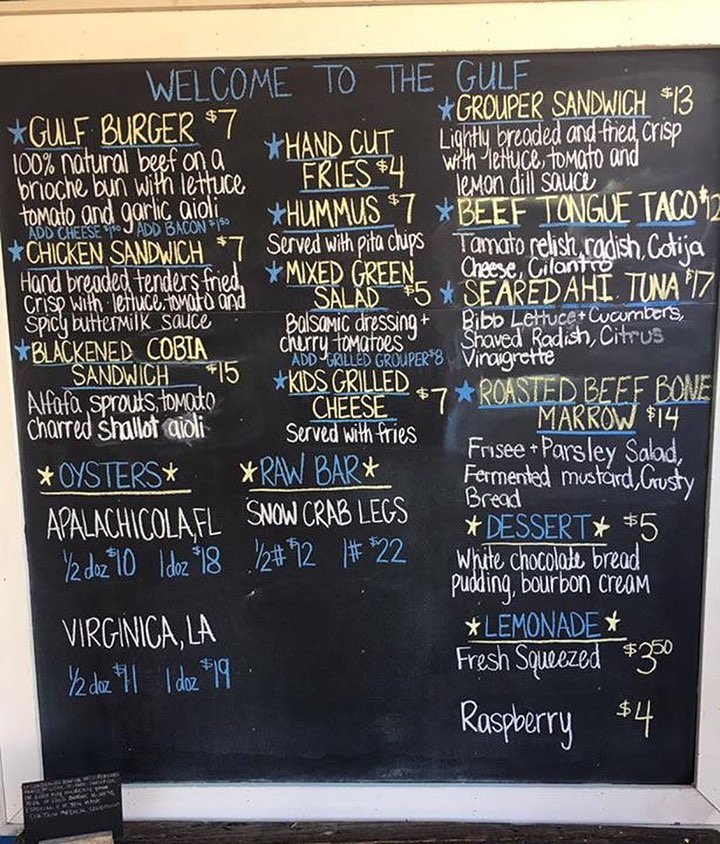 WELCOME TO THE GULF
★GULF BURGER $7
100% natural beef on a
brioche bun with lettuce
tomato and garlic aioli
ADD CHEESE $1.50 ADD BACON $1.50
★CHICKEN SANDWICH $7
Hand breaded tenders fried
crisp with lettuce, tomato and
spicy buttermilk sauce
★BLACKENED COBIA
SANDWICH $15
Alfafa sprouts, tomato
charred shallot aioli
★OYSTERS★
APALACHICOLA, FL
1/2 doz $10 1 doz $18
VIRGINICA, LA
1/2 doz $11 1 doz $19
★HAND CUT
FRIES $4
★HUMMUS $7
Served with pita chips
★MIXED GREEN
SALAD $5
Balsamic dressing +
cherry tomatoes
ADD GRILLED GROUPER $8
★KIDS GRILLED
CHEESE $7
Served with fries
★RAW BAR★
SNOW CRAB LEGS
1/2# $12 1# $22
★GROUPER SANDWICH $13
Lightly breaded and fried crisp
with lettuce, tomato and
lemon dill sauce
★BEEF TONGUE TACO $12
Tamato relish, radish, Cotija
Cheese, Cilantro
★SEARED AHI TUNA $17
Bibb Lettuce + Cucumbers,
Shaved Radish, Citrus
Vinaigrette
★ROASTED BEEF BONE
MARROW $14
Frisee + Parsley Salad,
Fermented mustard, Crusty
Bread
★DESSERT★ $5
White chocolate bread
pudding, bourbon cream
★LEMONADE★
Fresh Squeezed $3.50
Raspberry $4